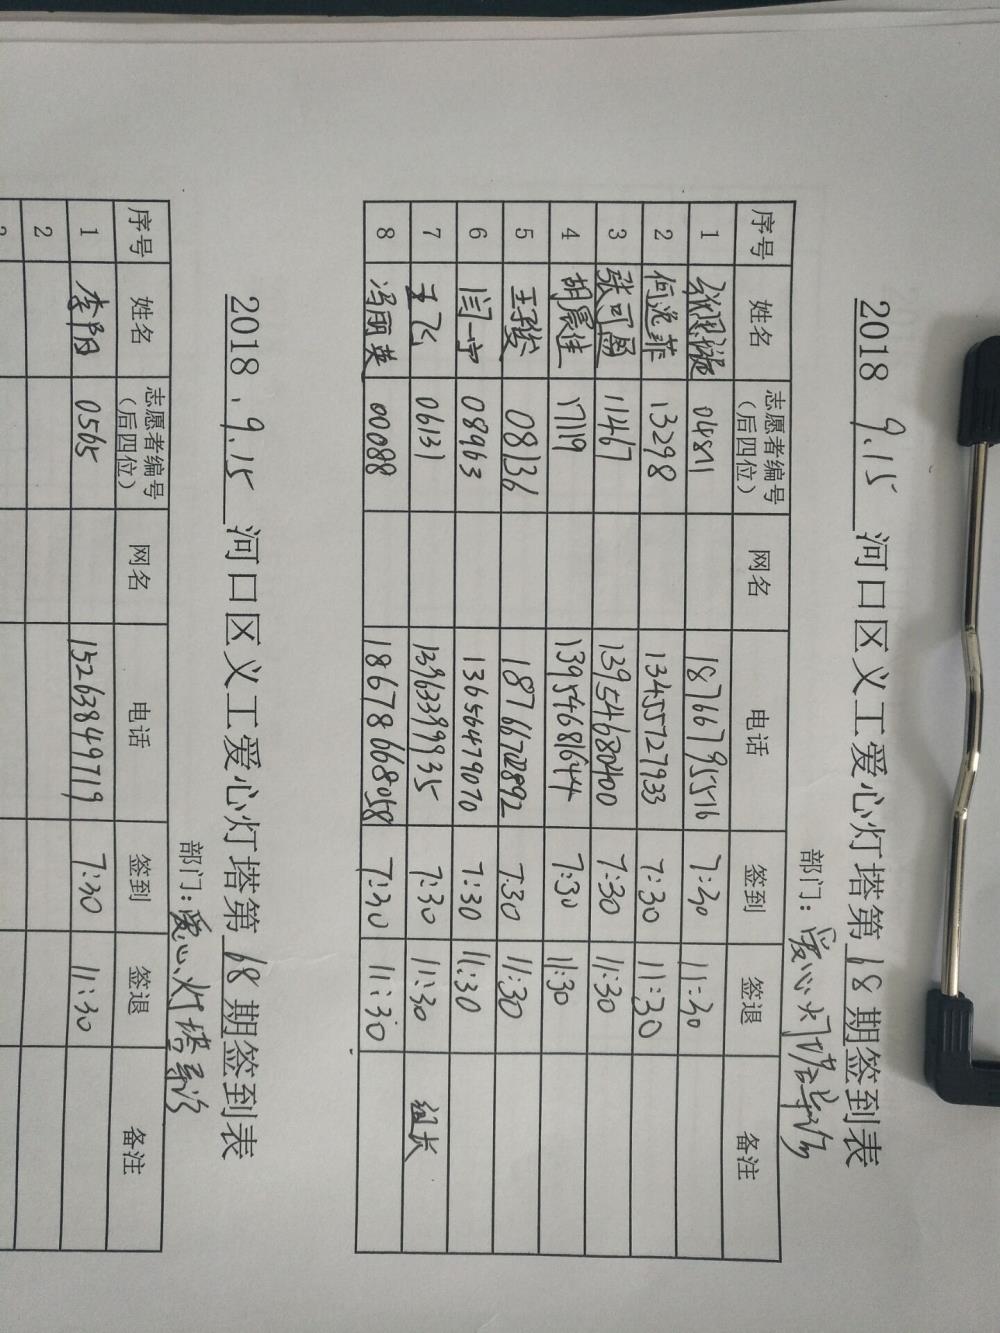 2018 9.15 河口区义工爱心灯塔第 68 期签到表
部门：爱心灯塔
序号 姓名 志愿者编号（后四位） 网名 电话 签到 签退 备注
1 04811 18766795516 7:30 11:30
2 何逸菲 13298 13455727933 7:30 11:30
3 张可 11467 13954680400 7:30 11:30
4 胡宸佳 17119 13954681644 7:30 11:30
5 王骏 08136 18766702892 7:30 11:30
6 闫一宁 08963 13656479070 7:30 11:30
7 王飞 06131 13963399935 7:30 11:30 组长
8 冯丽英 00088 18678668058 7:30 11:30
2018.9.15 河口区义工爱心灯塔第 68 期签到表
部门：爱心灯塔
序号 姓名 志愿者编号（后四位） 网名 电话 签到 签退 备注
1 李阳 0565 15263849719 7:30 11:30
2